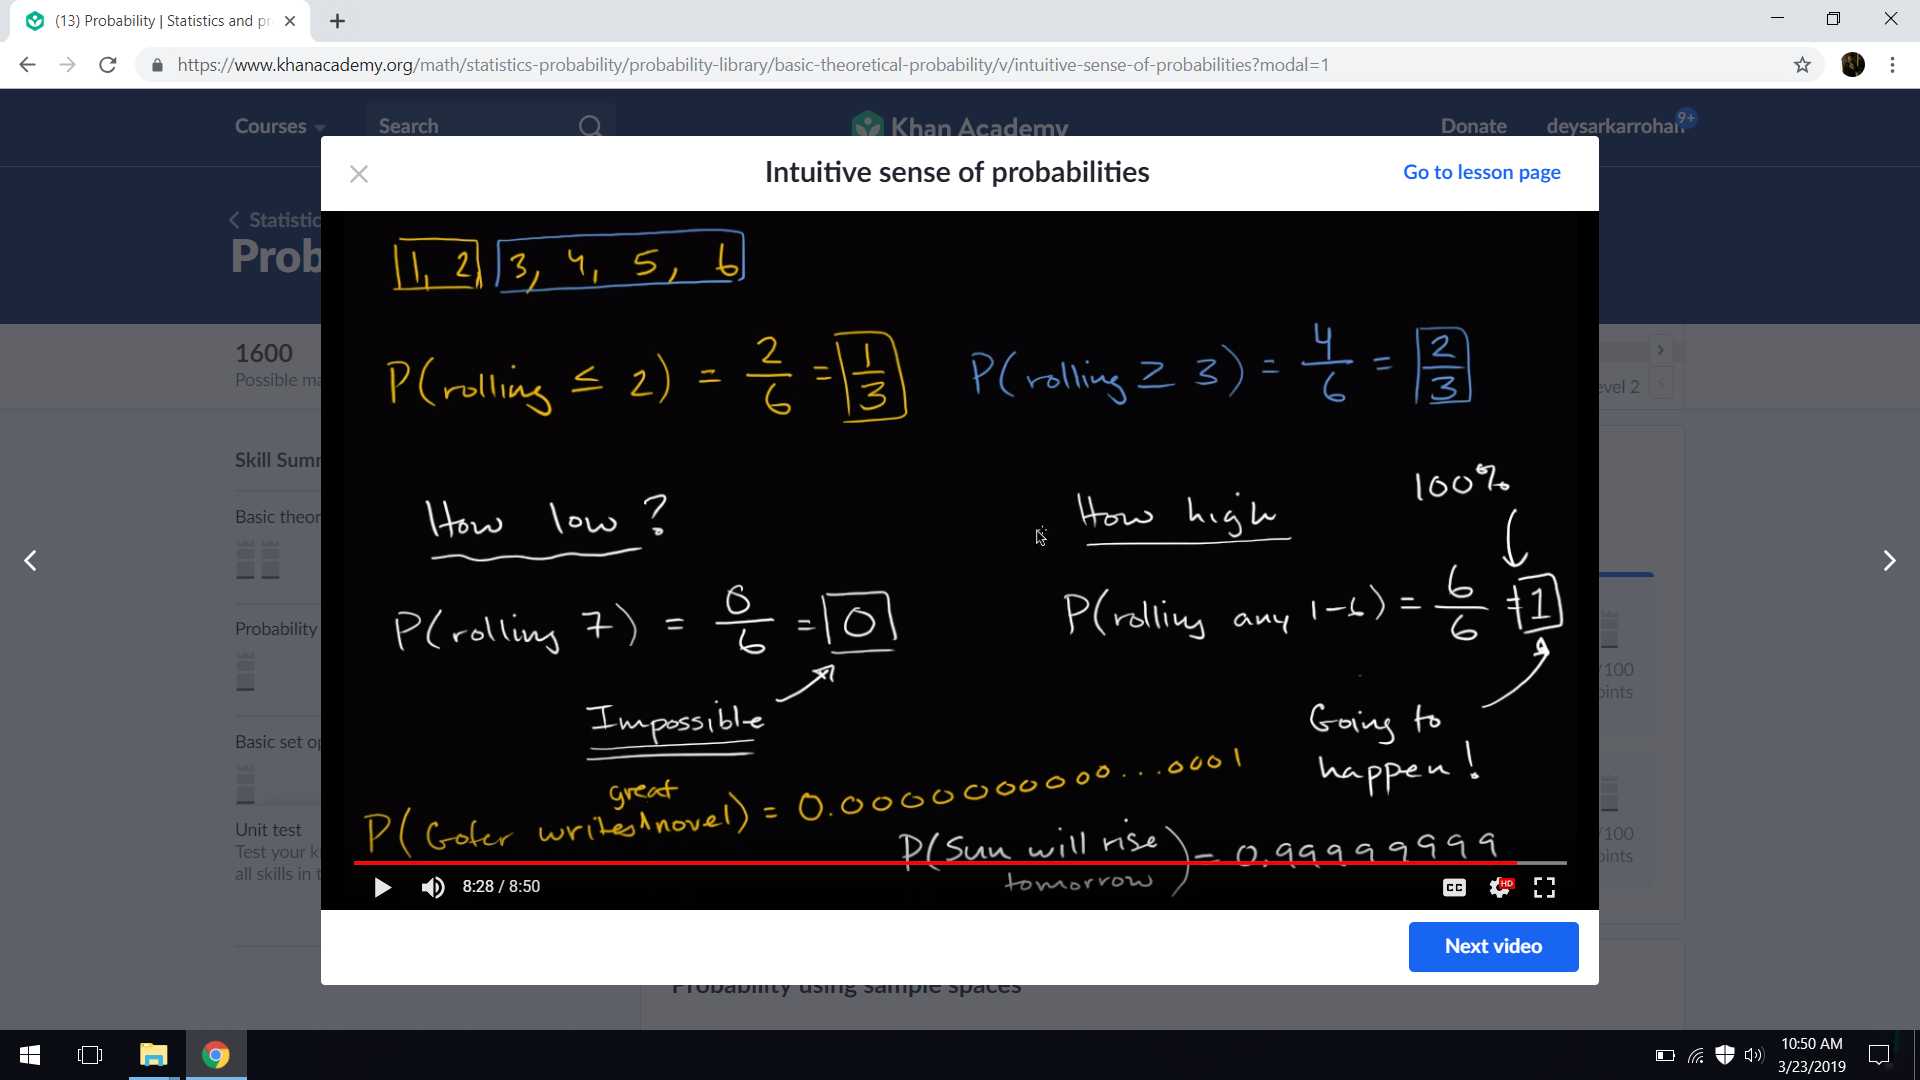 (13) Probability | Statistics and pr
https://www.khanacademy.org/math/statistics-probability/probability-library/basic-theoretical-probability/v/intuitive-sense-of-probabilities?modal=1
Courses Search Khan Academy Donate deysarkarrohan 9+
Intuitive sense of probabilities
Go to lesson page
Statistic
Prob
1600
Possible ma
evel 2
Skill Summ
Basic theor
Probability
Basic set op
Unit test
Test your k
all skills in t
/100
oints
/100
oints
1, 2, 3, 4, 5, 6
P(rolling ≤ 2) = 2/6 = 1/3
P(rolling ≥ 3) = 4/6 = 2/3
How low?
How high
100%
P(rolling 7) = 0/6 = 0
P(rolling any 1-6) = 6/6 = 1
Impossible
Going to
happen!
great
P(Gofer writes novel) = 0.0000000000...0001
P(Sun will rise
tomorrow) = 0.99999999
8:28 / 8:50
CC HD
Next video
Probability using sample spaces
10:50 AM
3/23/2019